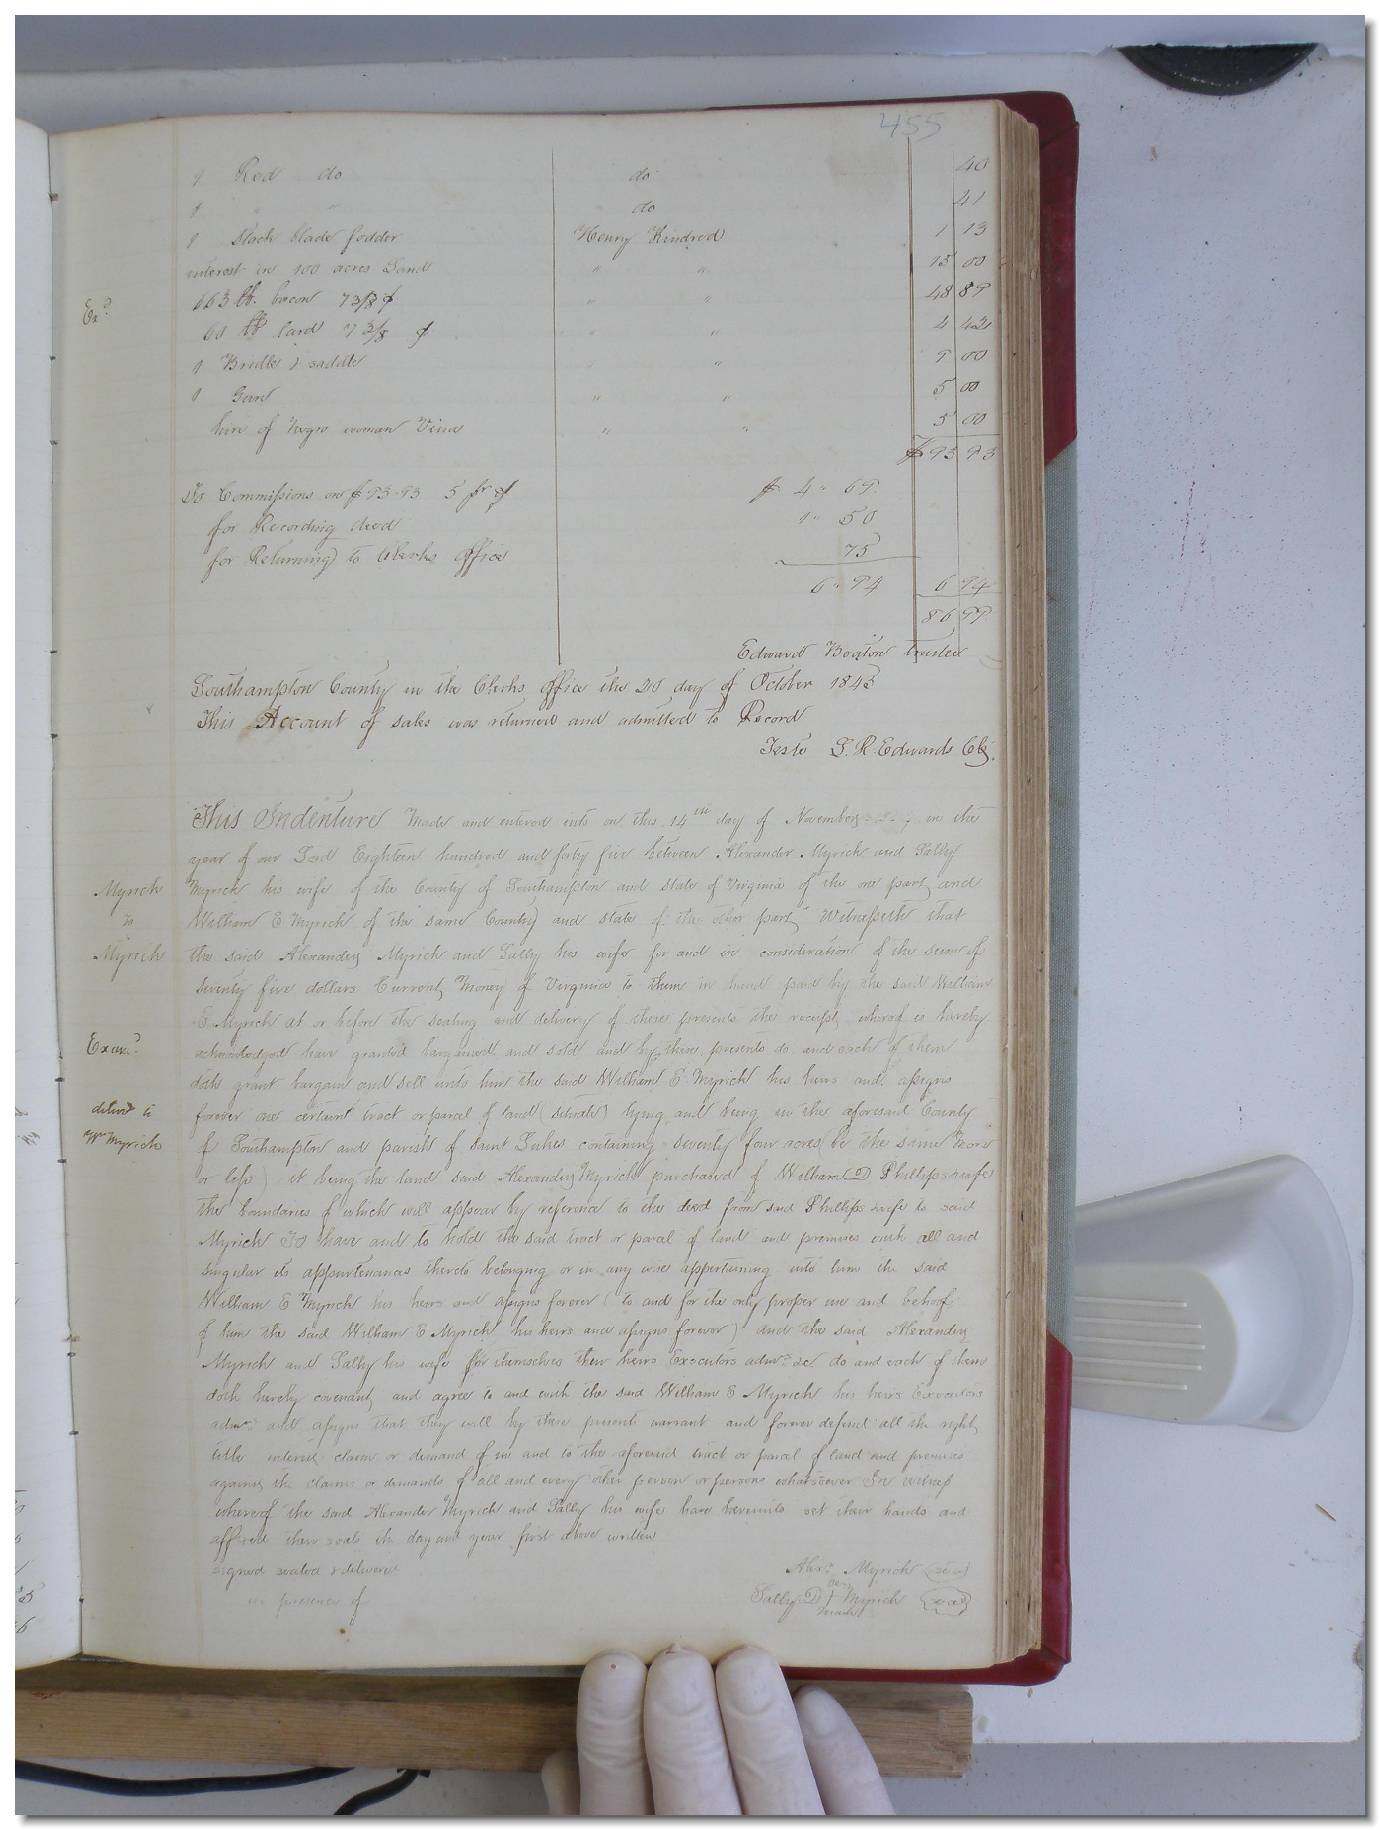 455
1 Red do do 40
1 " " do 41
1 Stack blade fodder Henry Kindred 1 13
interest in 100 acres Land " " 15 00
Ex.d
663 lb. bacon 7 3/8 ¢ " " 48 89
60 lb lard 7 3/8 ¢ " " 4 42
1 Bridle & saddle " 9 00
1 Gun " " 5 00
hire of Negro woman Vina " " 5 00
$ 93 93
To Commissions on $93.93 5 pr ct $ 4 " 69
for Recording deed 1 " 50
for Returning to Clerks office 75
6 " 94 6 94
86 99
Edward Boykin trustee
Southampton County in the Clerks office the 20 day of October 1845
This Account of sales was returned and admitted to Record
Teste L. R. Edwards Clk.
This Indenture Made and entered into on this 14th day of November in the
year of our Lord Eighteen hundred and forty five between Alexander Myrick and Sally
Myrick
Myrick his wife of the County of Southampton and state of Virginia of the one part and
to
William E Myrick of the same County and state of the other part Witnesseth that
Myrick
the said Alexander Myrick and Sally his wife for and in consideration of the sum of
Seventy five dollars Current Money of Virginia to them in hand paid by the said William
E. Myrick at or before the sealing and delivery of these presents the receipt whereof is hereby
Exam.d
acknowledged have granted bargained and sold and by these presents do and each of them
doth grant bargain and sell unto him the said William E. Myrick his heirs and assigns
delivd to
forever one certain tract or parcel of land (situate) lying and being in the aforesaid County
Wm Myrick
of Southampton and parish of Saint Lukes containing seventy four acres (be the same more
or less) it being the land said Alexander Myrick purchased of William D Phillips & wife
the boundaries of which will appear by reference to the deed from said Phillips & wife to said
Myrick To have and to hold the said tract or parcel of land and premises with all and
singular its appurtenances thereto belonging or in any wise appertaining unto him the said
William E Myrick his heirs and assigns forever (to and for the only proper use and behoof
of him the said William E Myrick his heirs and assigns forever) And the said Alexander
Myrick and Sally his wife for themselves their heirs Executors admr.s &c do and each of them
doth hereby covenant and agree to and with the said William E Myrick his heirs Executors
admrs and assigns that they will by these presents warrant and forever defend all the right
title interest claim or demand of in and to the aforesaid tract or parcel of land and premises
against the claims or demands of all and every other person or persons whatsoever In witness
whereof the said Alexander Myrick and Sally his wife have hereunto set their hands and
affixed their seals the day and year first above written
signed sealed & delivered
in presence of
Alexr. Myrick (seal)
her
Sally D + Myrick (seal)
mark